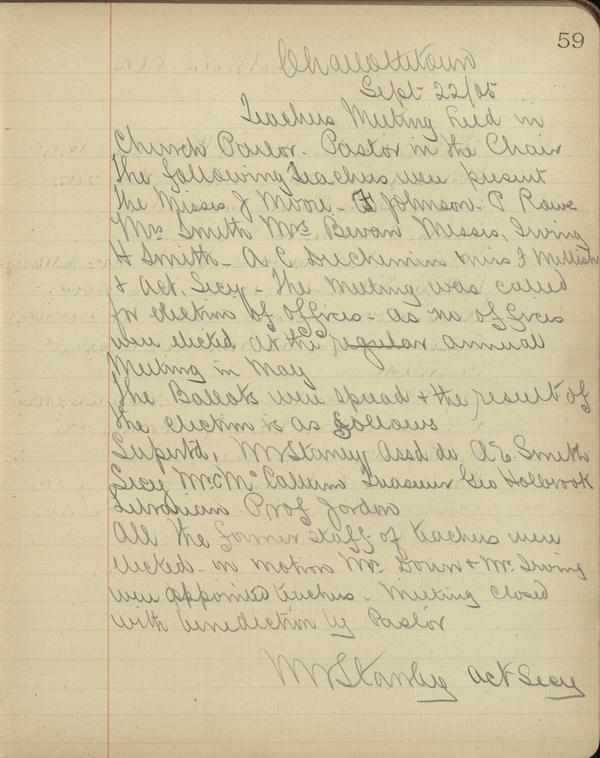 59
Charlottetown
Sept 22/05
Teachers Meeting held in
Church Parlor. Pastor in the Chair
The following Teachers were present
the Misses J Moore - F Johnson. P Rowe
Mrs Smith Mrs Bevan Messrs, Irving
H Smith - A E Duchemin Miss J Mellish
& Act. Secy - The Meeting was called
for election of offices - as no offices
were elected at the regular annual
Meeting in May
The Ballots were spread & the result of
the election is as follows
Suptd, WW Stanley Assd do A E Smith
Secy Mr Mc Callum Treasurer Geo Holbrook
Librarian Prof Jordon
All the former staff of teachers were
elected - on motion Mr. & Mr. Irving
were appointed teachers - Meeting closed
with benediction by Pastor
WW Stanley Act Secy